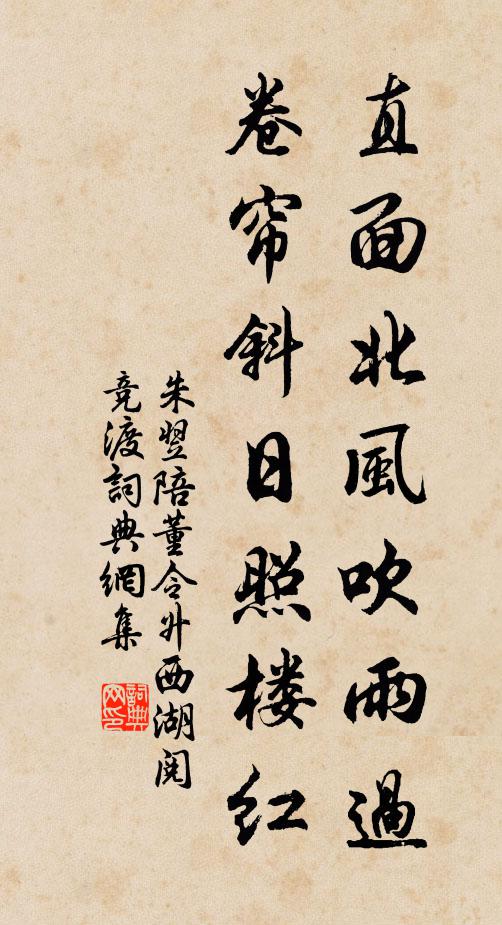 直面北風吹雨過
卷帘斜日照楼红
朱翌陪董令升西湖阅
竞渡詞典網集
詞典网印